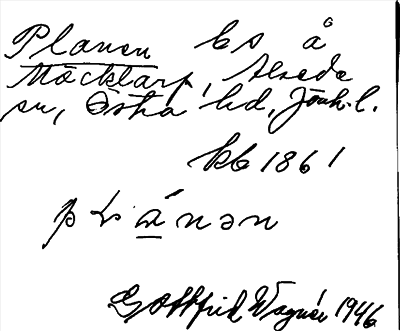 Planen ls å
Mäcklarp, Alseda
sn, Östra hd, Jönk. l.
kb 1861
plánən
Gottfrid Wagnér 1946